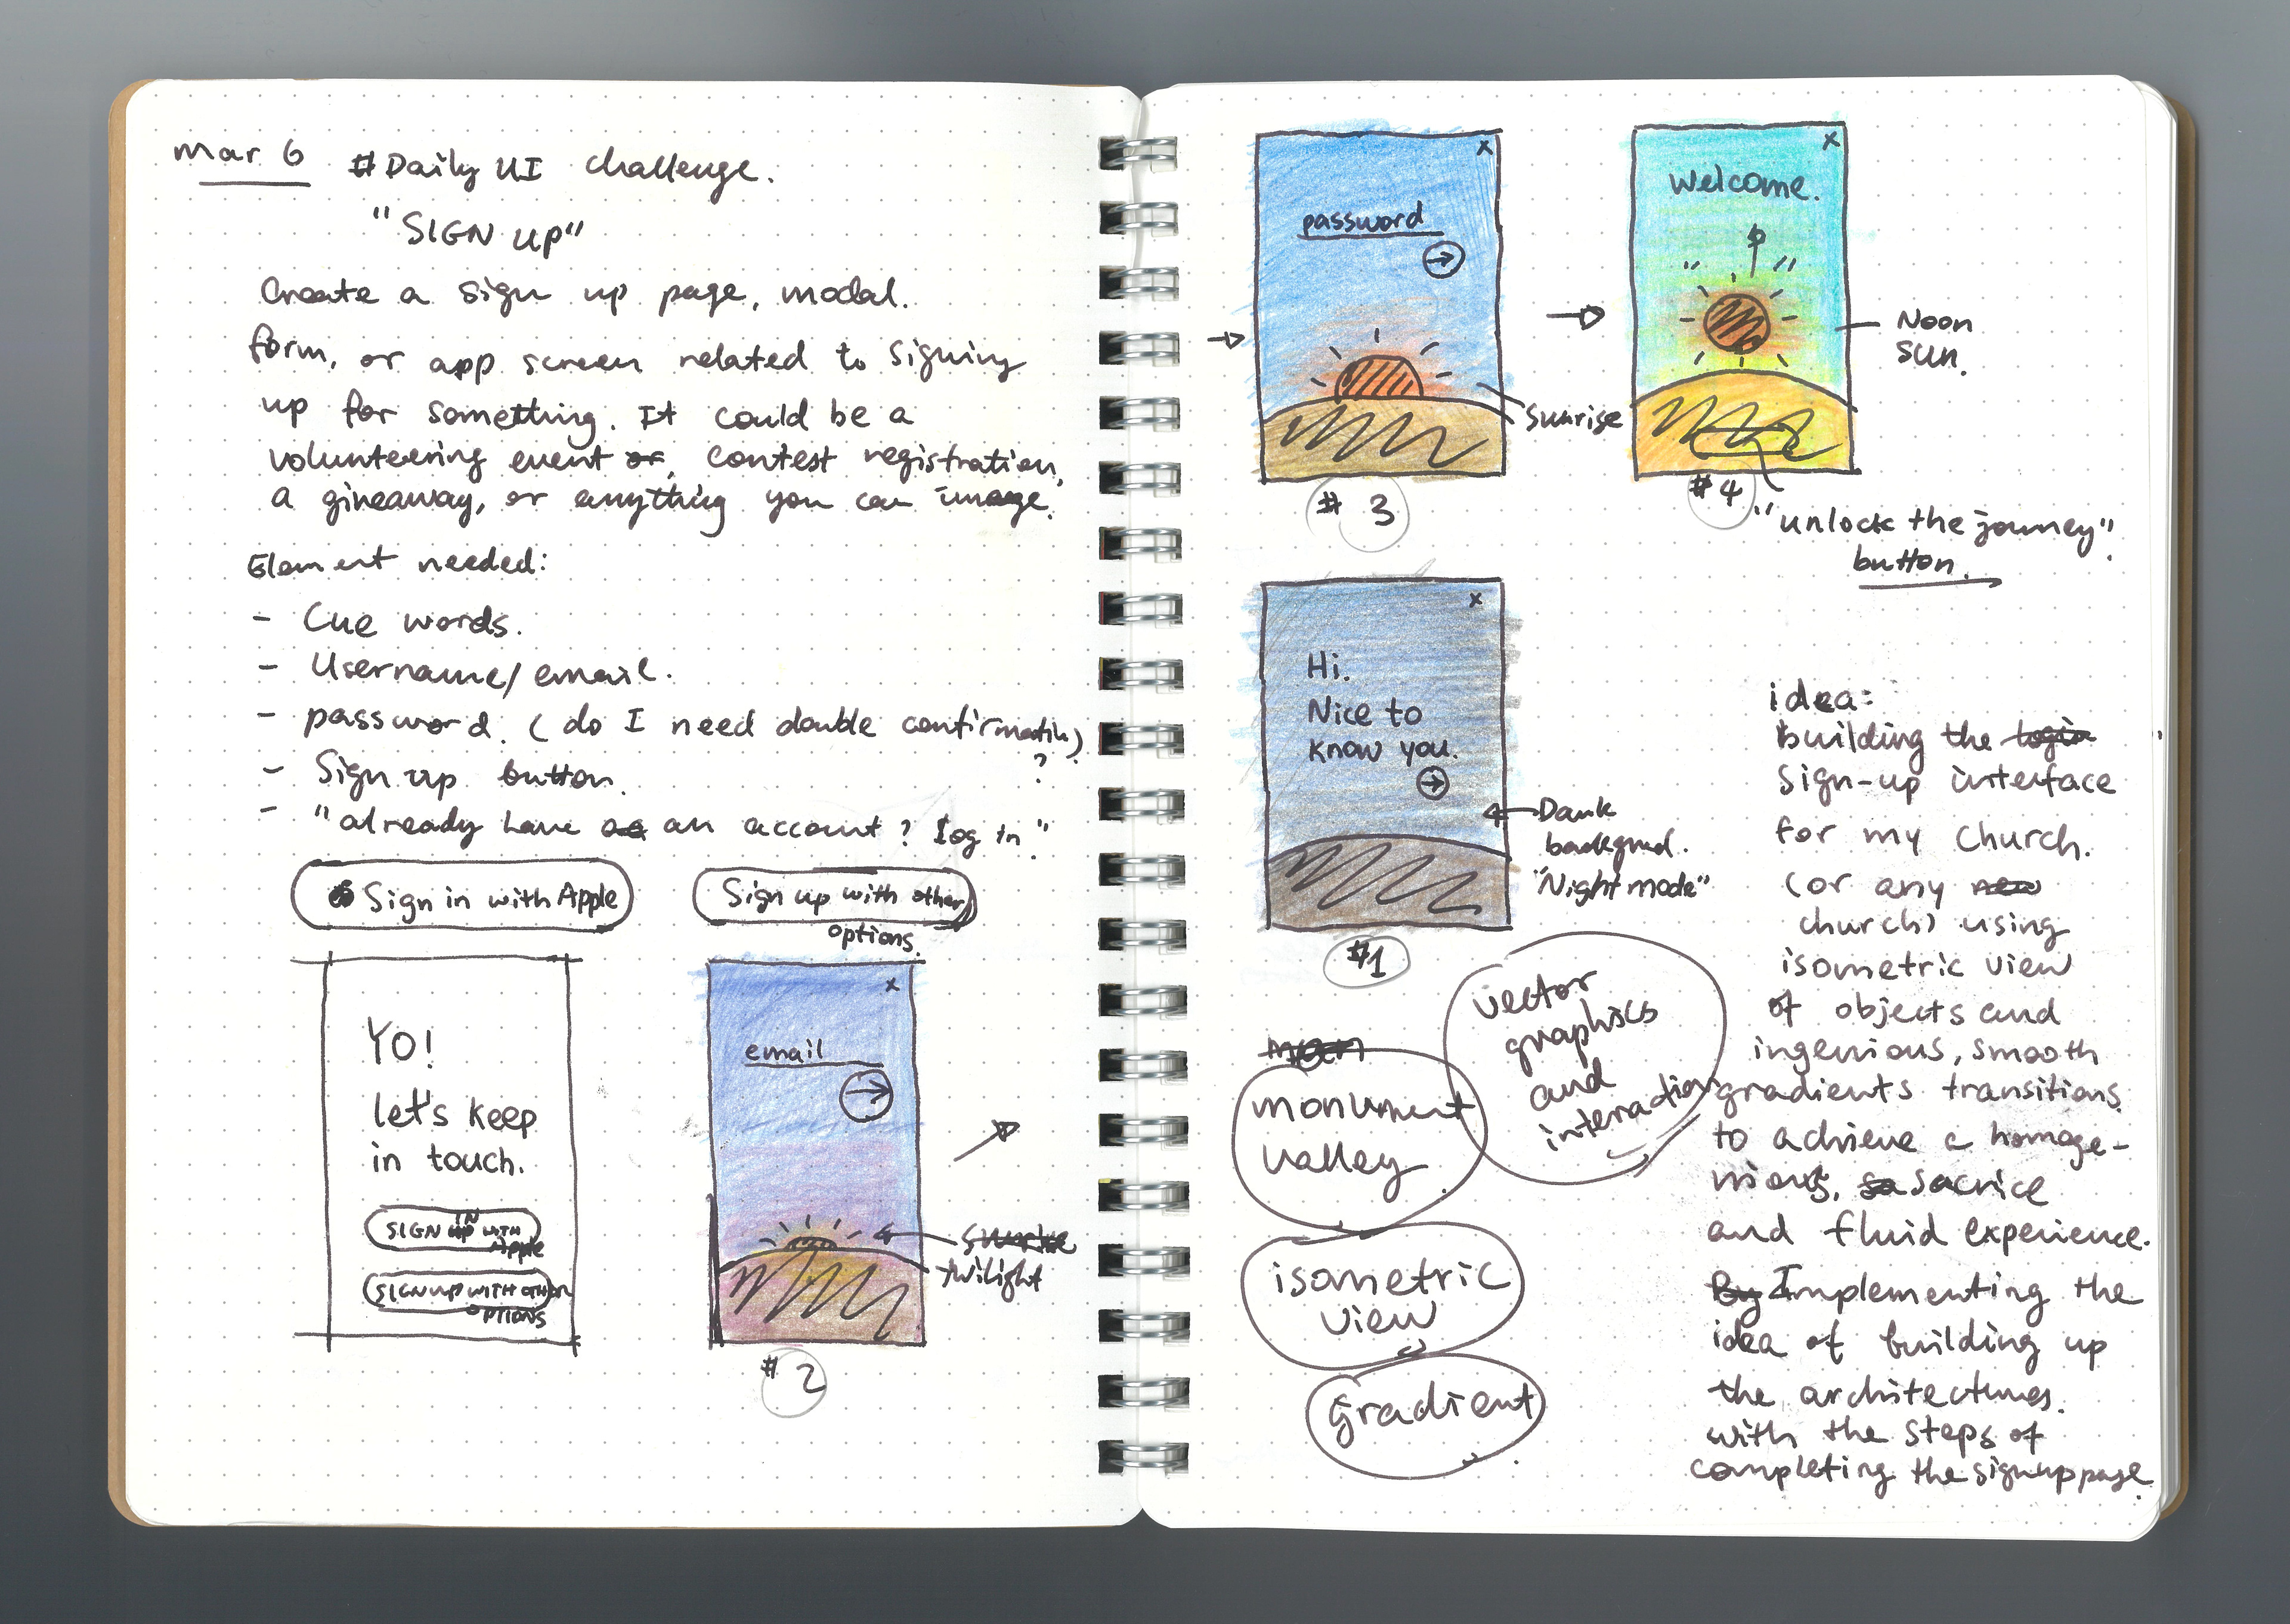 Mar 6
#Daily UI challenge.
"SIGN up"
Create a sign up page, modal.
form, or app screen related to signing
up for something. It could be a
volunteering event or, contest registration,
a giveaway, or anything you can image.
Element needed:
- Cue words.
- Username/email.
- password. (do I need double confirmation)
?
- Sign up button.
- "already have an account? Log in"
Sign in with Apple
Sign up with other
options.
YO!
let's keep
in touch.
SIGN IN WITH
Apple
SIGN UP WITH OTHER
OPTIONS
x
email
twilight
#2
x
password
Sunrise
#3
x
Welcome.
Noon
sun.
#4
"unlock the journey"
button.
x
Hi.
Nice to
know you.
Dark
"Night mode"
#1
vector
graphics
and
interaction
monument
valley.
isometric
view
gradient
idea:
building the login
sign-up interface
for my church.
(or any new
church) using
isometric view
of objects and
ingenious, smooth
gradients transitions
to achieve a homoge-
and fluid experience.
By Implementing the
idea of building up
the architectures.
with the steps of
completing the signup page.